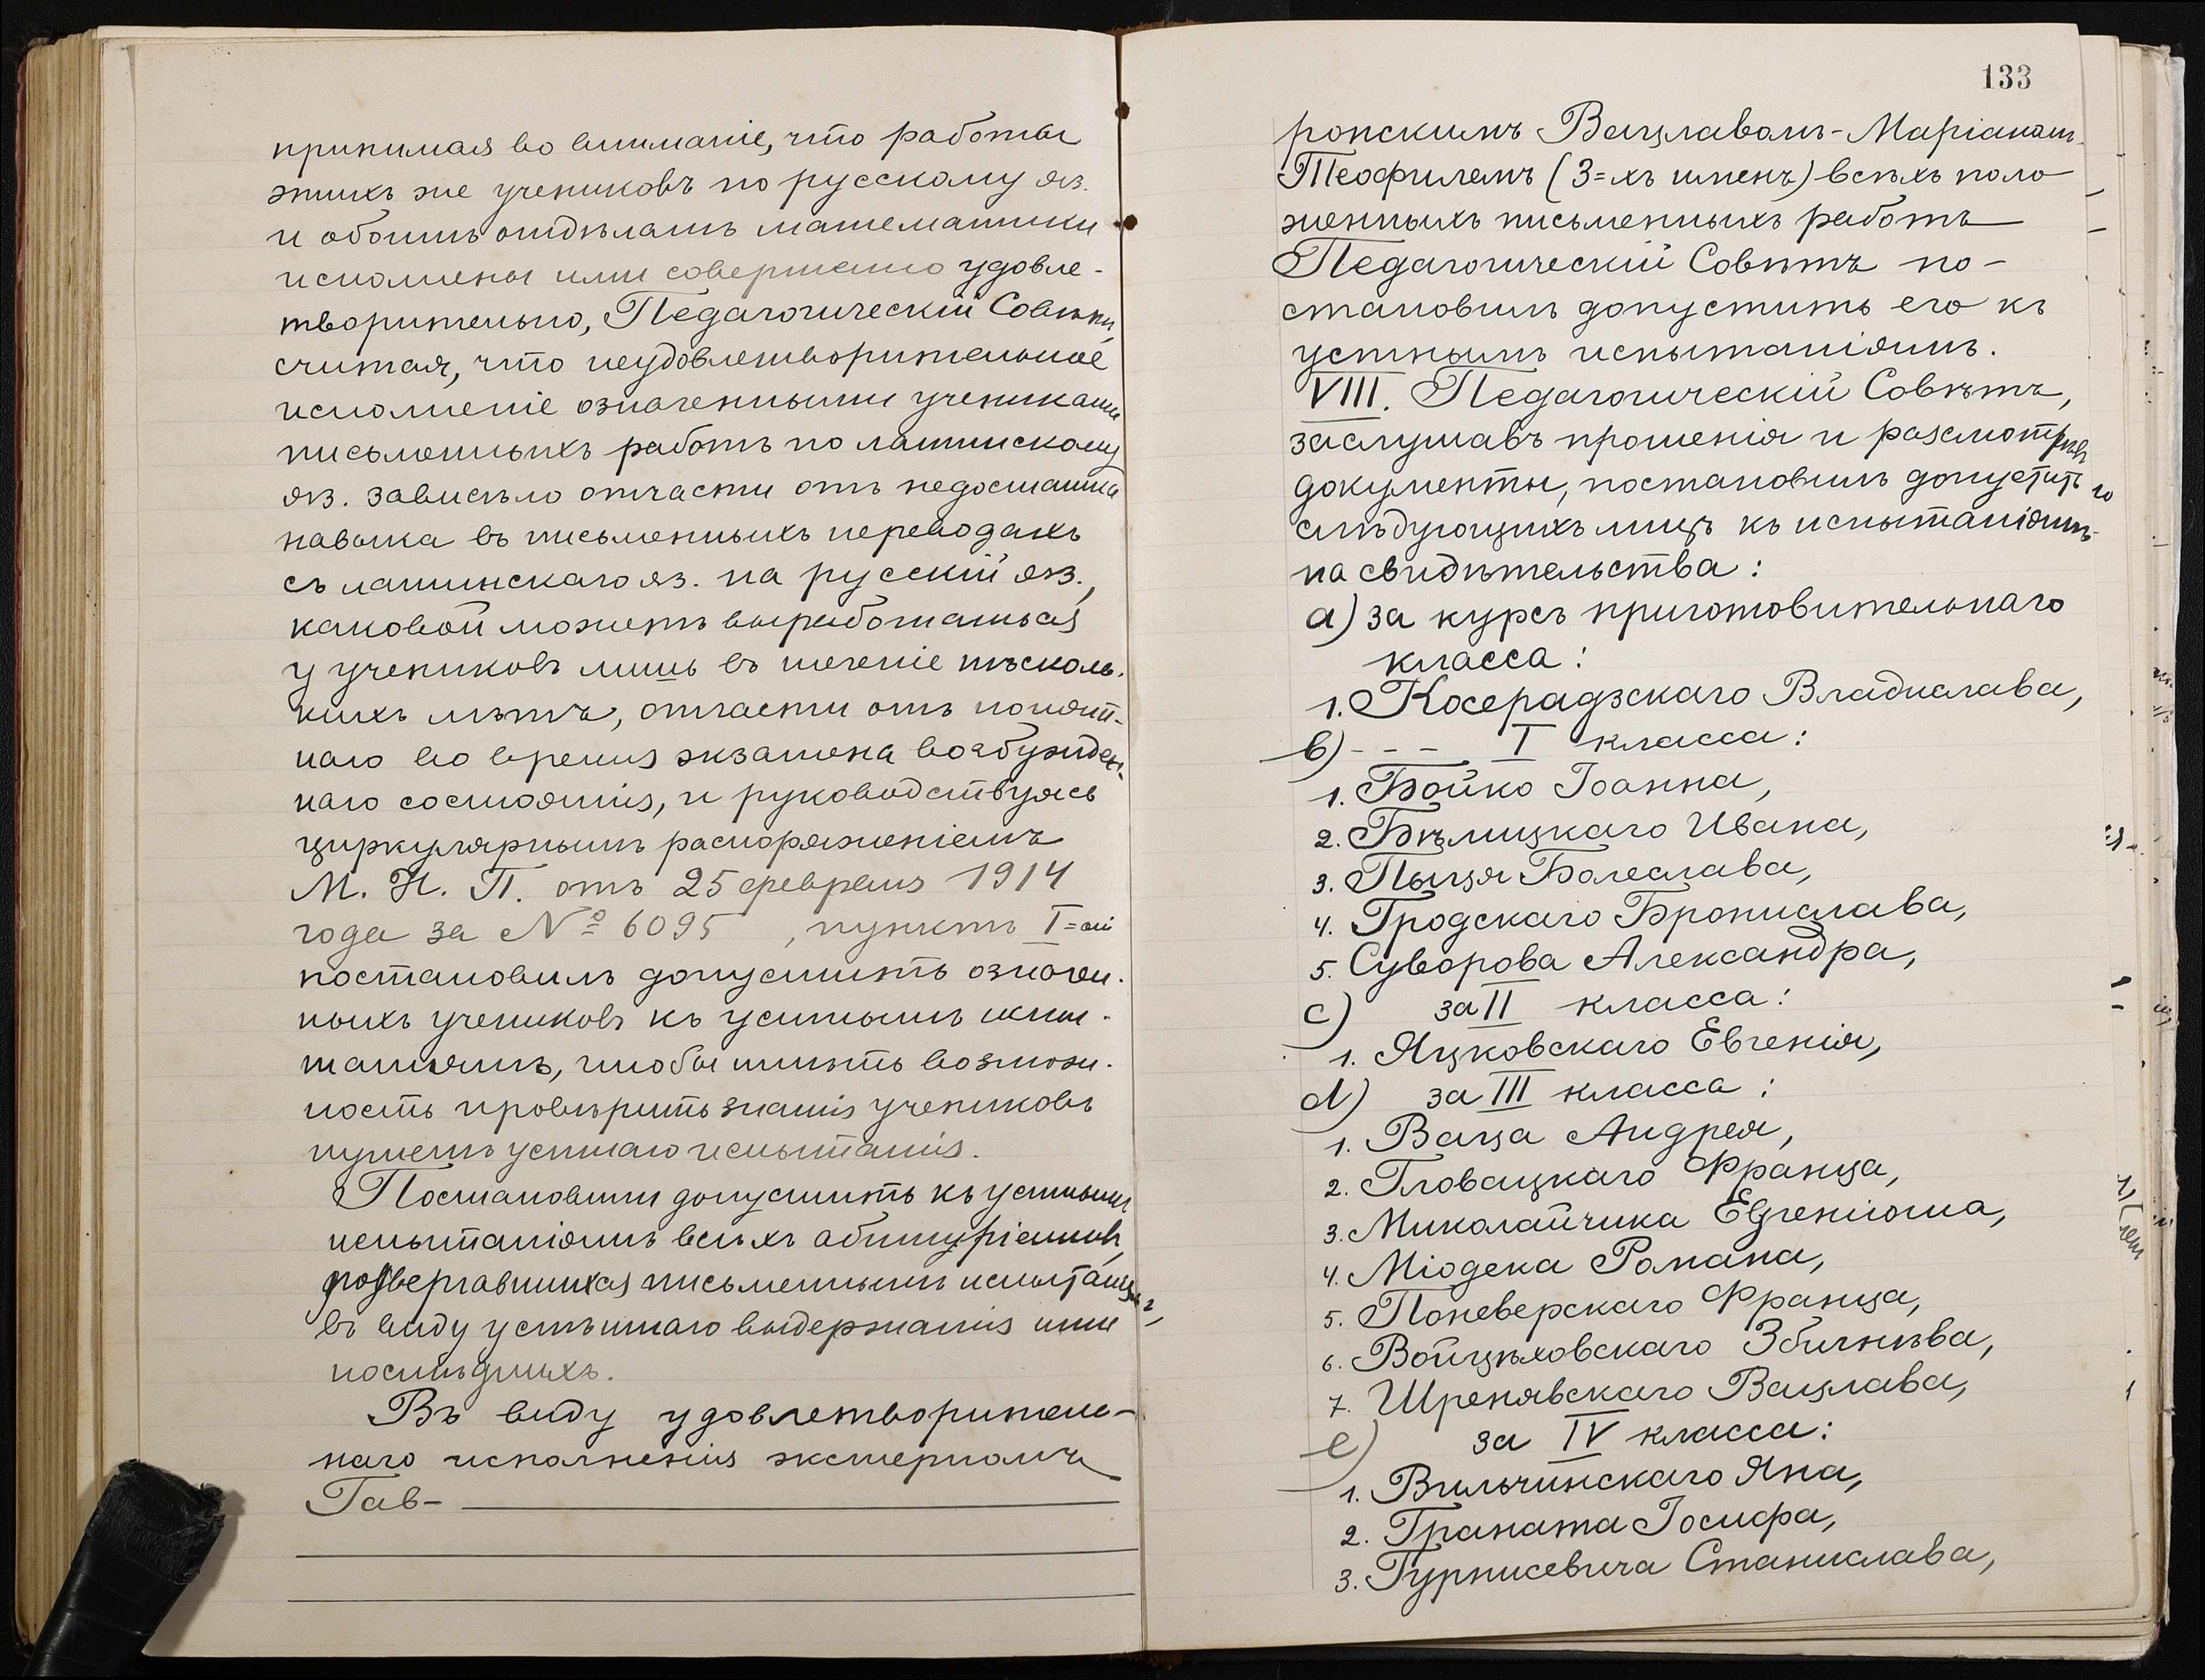 принимая во вниманіе, что работы
этихъ же учениковъ по русскому яз.
и обоимъ отдѣламъ математики
исполнены ими совершенно удовле-
творительно, Педагогическій Совѣтъ,
считая, что неудовлетворительное
исполненіе означенными учениками
письменныхъ работъ по латинскому
яз. зависѣло отчасти отъ недостатка
навыка въ письменныхъ переводахъ
съ латинскаго яз. на русскій яз.,
каковой можетъ выработаться
у учениковъ лишь въ теченіе нѣсколь-
кихъ лѣтъ, отчасти отъ понят-
наго во время экзамена возбужден-
наго состоянія, и руководствуясь
циркулярнымъ распоряженіемъ
М. Н. П. отъ 25 февраля 1914
года за № 6095 , пунктъ I=ый
постановилъ допустить означен-
ныхъ учениковъ къ устнымъ испы-
таніямъ, чтобы имѣть возмож-
ность провѣрить знанія учениковъ
путемъ устнаго испытанія.
Постановили допустить къ устнымъ
испытаніямъ всѣхъ абитуріентовъ,
подвергавшихся письменнымъ испытаніямъ,
въ виду успѣшнаго выдержанія ими
послѣднихъ.
Въ виду удовлетворитель-
наго исполненія экстерномъ
Гав-
133
ронскимъ Вацлавомъ-Маріаномъ-
Теофилемъ (3=хъ именъ) всѣхъ поло
женныхъ письменныхъ работъ
Педагогическій Совѣтъ по-
становилъ допустить его къ
устнымъ испытаніямъ.
VIII. Педагогическій Совѣтъ,
заслушавъ прошенія и разсмотрѣвъ
документы, постановилъ допустить
слѣдующихъ лицъ къ испытаніямъ
на свидѣтельства:
а) за курсъ приготовительнаго
класса:
1. Косерадзскаго Владислава,
b) - - - I класса:
1. Бойко Іоанна,
2. Бѣлицкаго Ивана,
3. Пыця Болеслава,
4. Гродскаго Бронислава,
5. Суворова Александра,
c) за II класса:
1. Яцковскаго Евгенія,
d) за III класса:
1. Ваца Андрея,
2. Гловацкаго Франца,
3. Миколайчика Евгеніюша,
4. Міодека Романа,
5. Поневерскаго Франца,
6. Войцѣховскаго Збигнѣва,
7. Шренявскаго Вацлава,
e) за IV класса:
1. Вильчинскаго Яна,
2. Граната Іосифа,
3. Гурнисевича Станислава,